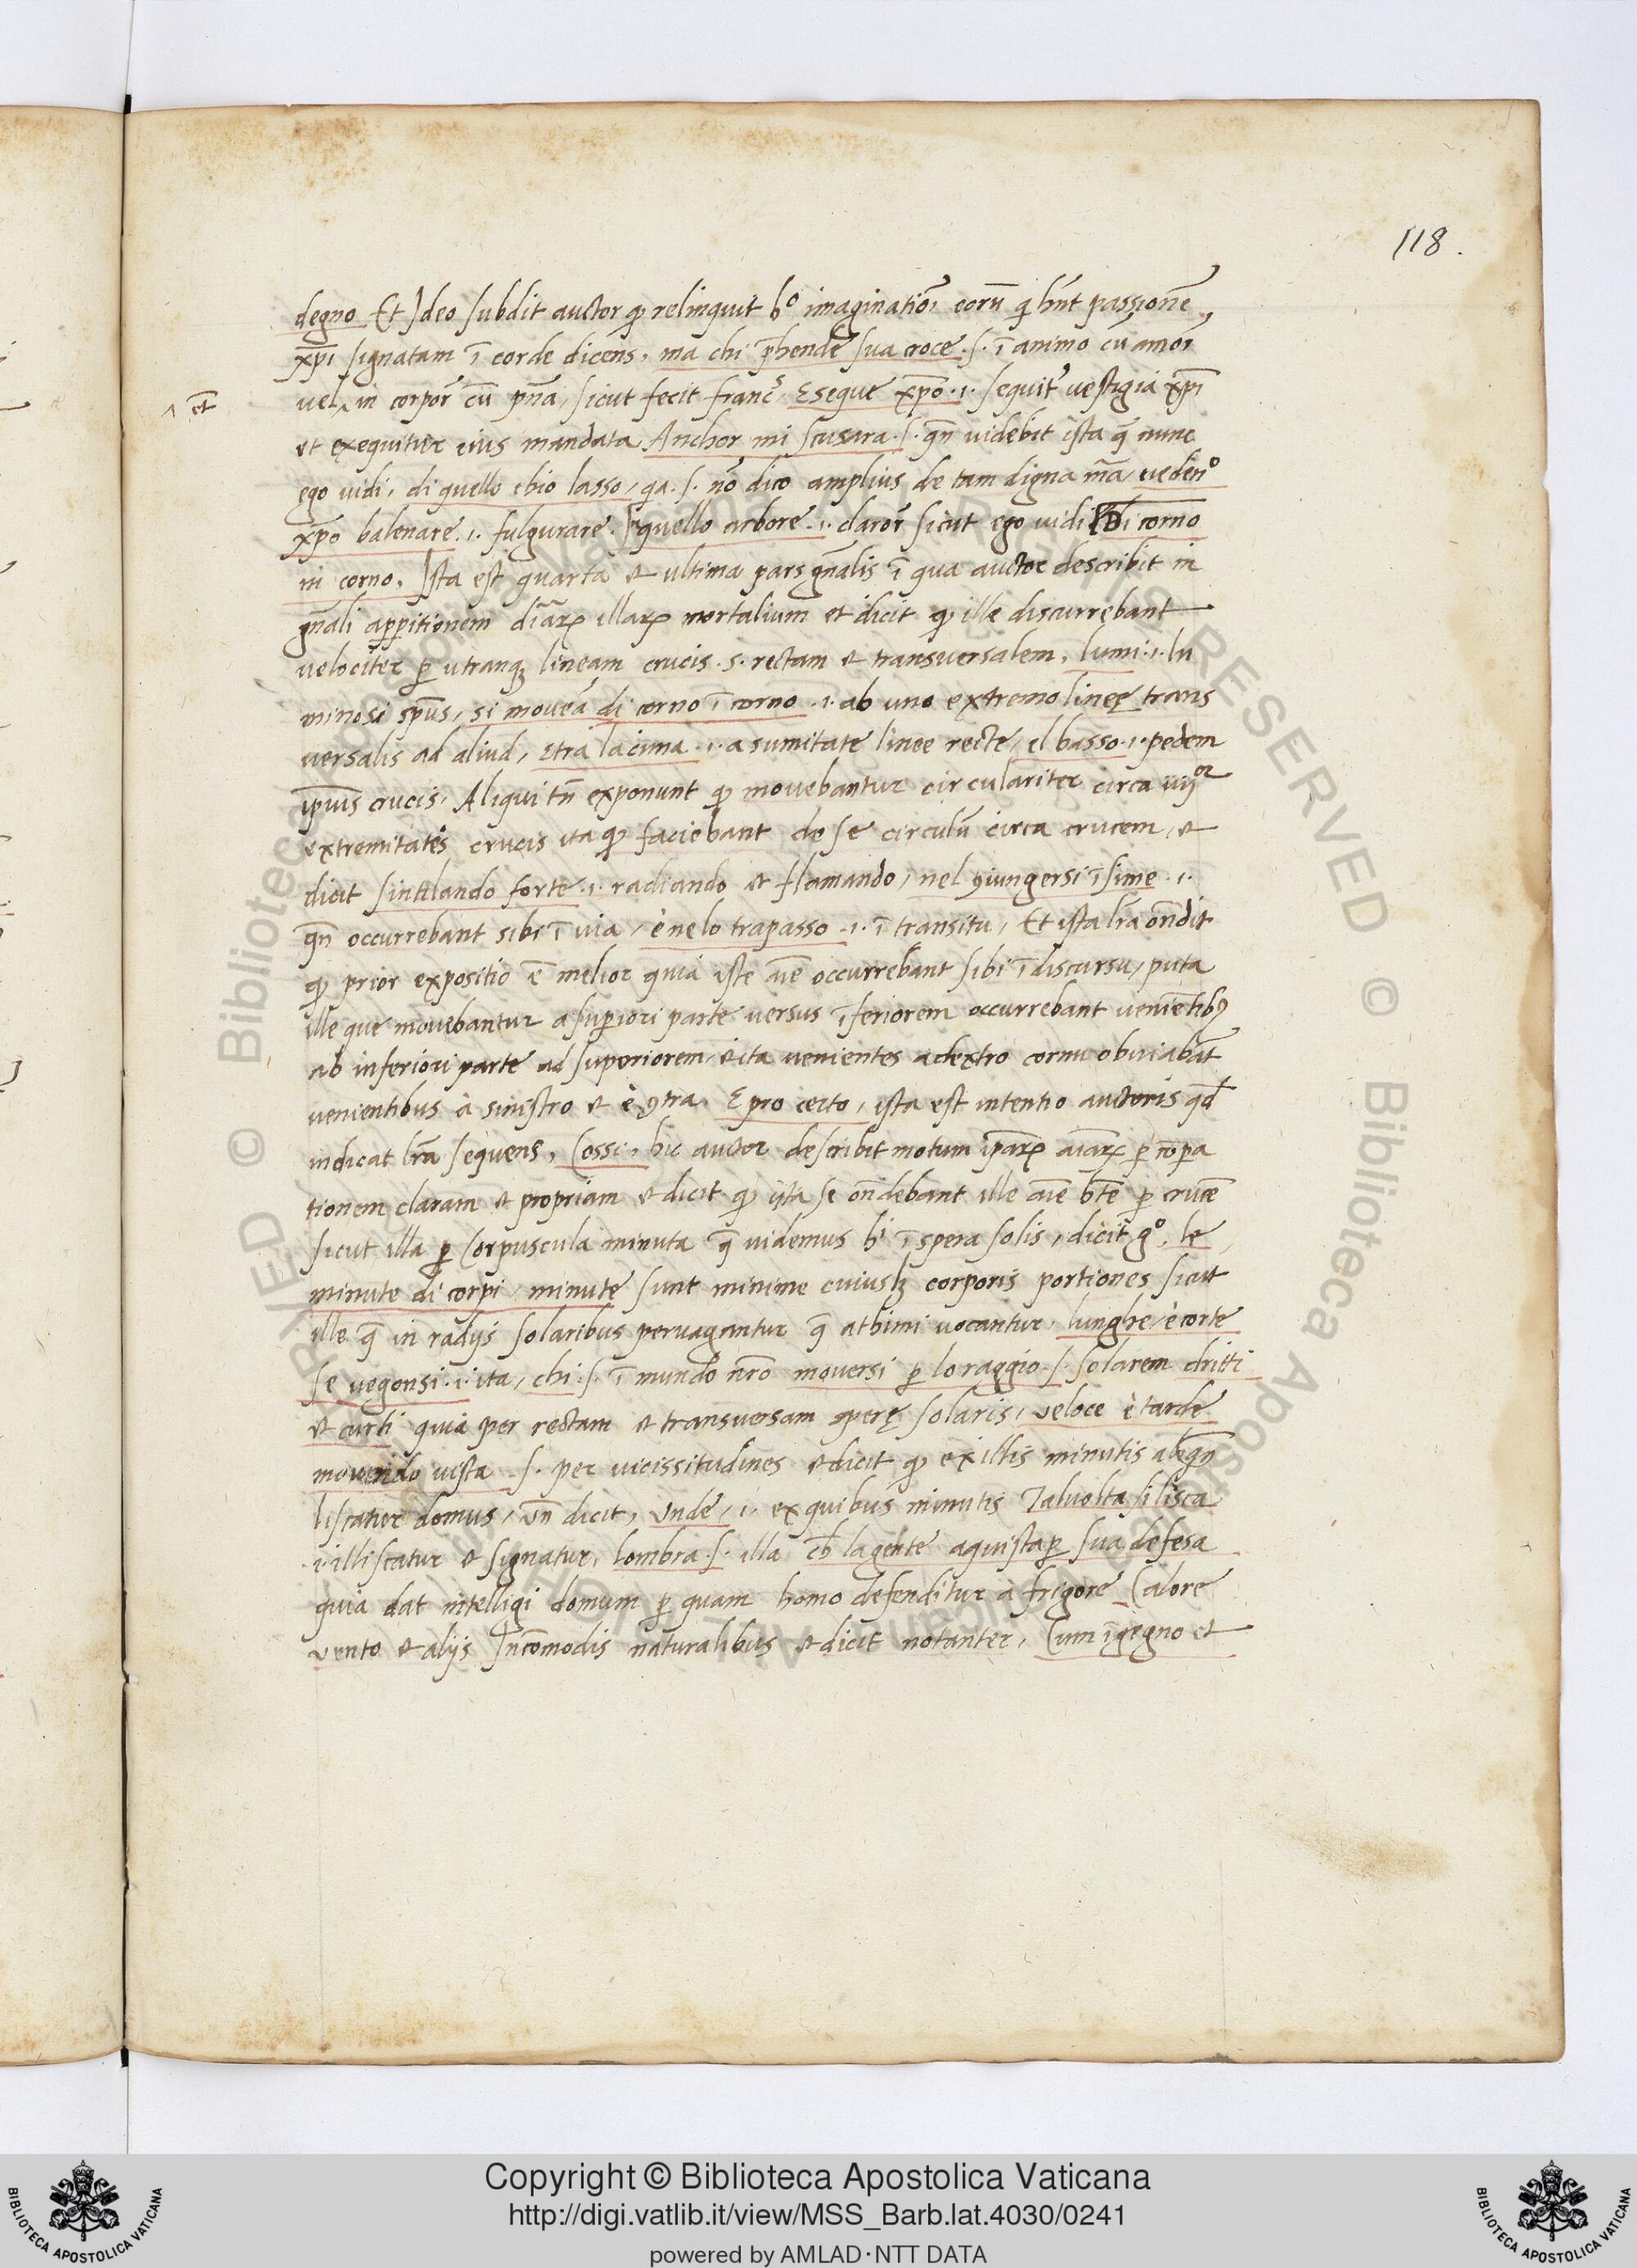 118.
degno Et Ideo subdit auctor qꝫ relinquit hº imaginatiōi eorū qͥ hn̄t passionē
xp̄i signatam ī corde dicens, ma chi p̄hende sua croce .s. ī animo cū amoī
vel ^ in corpor̄ cū pn̄a, sicut fecit franc̄s, E segue xp̄o .i. sequit᷑ vestigia xp̄i
^ et
et exequitur eius mandata Anchor mi scusara .s. qn̄ videbit ista q̄ nunc
ego vidi, di quello chio lasso, qa .s. nō dico amplius de tam digna mā, vedenº
xp̄o balenare .i. fulgurare. In quello arbore .i. claror̄ sicut ego vidi Di corno
in corno. Ista est quarta et ultima pars gn̄alis ī qua auctor describit in
gn̄ali appitionem diāꝝ illaꝝ mortalium et dicit qꝫ ille discurrebant
velociter ꝑ utranqꝫ lineam crucis .s. rectam et transversalem, lumi .i. lu
minosi sp̄us, si moveā di corno ī corno .i. ab uno extremo lineę trans
versalis ad aliud, E tra la cima .i. a sumitate linee recte, el basso .i. pedem
ip̄ius crucis. Aliqui tn̄ exponunt qꝫ movebantur circulariter circa iiijor
extremitates crucis ita qꝫ faciebant de se circulū circa crucem, et
dicit sintilando forte .i. radiando et flamando, nel ꝯiungersi īsime .i.
qn̄ occurrebant sibi ī via, è ne lo trapasso .i. ī transitu, Et ista lr̄a on̄dit
qꝫ prior expositio ē melior quia iste aīe occurrebant sibi ī discursu, puta
ille que movebantur a supiori parte versus īferiorem occurrebant venientibꝰ
ab inferiori parte ad superiorem, et ita venientes a dextro cornu obviabāt
venientibus à sinistro et è ꝯtra. E pro certo, ista est intentio auctoris qd̄
indicat lr̄a sequens, Cossi, hic auctor describit motum ip̄aꝝ aīaꝝ ꝑ cōpa
tionem claram et propriam et dicit qꝫ ista se on̄debant ille aīe bt̄e ꝑ crucē
sicut illa ꝑ Corpuscula minuta q̄ videmus hͥ ī spera solis, dicit gº, le
minute di corpi, minute sunt minime cuiuslꝫ corporis portiones sicut
ille q̄ in radijs solaribus pervagantur q̄ athimi vocantur, lunghe, è corte
se vegonsi .i. ita, chi .s. ī mundo nr̄o moversi ꝑ lo raggio .s. solarem dritti
et curti quia per rectam et transversam sperę solaris, veloce è tarde
movendo vista .s. per vicissitudines et dicit qꝫ ex illis minutis aliqn̄
liscatur domus, vn̄ dicit, Unde, .i. ex quibus minutis Talvolta si lisca
.i. illiscatur et signatur, lombra .s. illa ch̄ la gente aquista ꝑ sua defesa
quia dat intelligi domum ꝑ quam homo defenditur à frigore Calore
vento et alijs Incōmodis naturalibus et dicit notanter, Cum īgegno et
Copyright © Biblioteca Apostolica Vaticana
http://digi.vatlib.it/view/MSS_Barb.lat.4030/0241
powered by AMLAD·NTT DATA